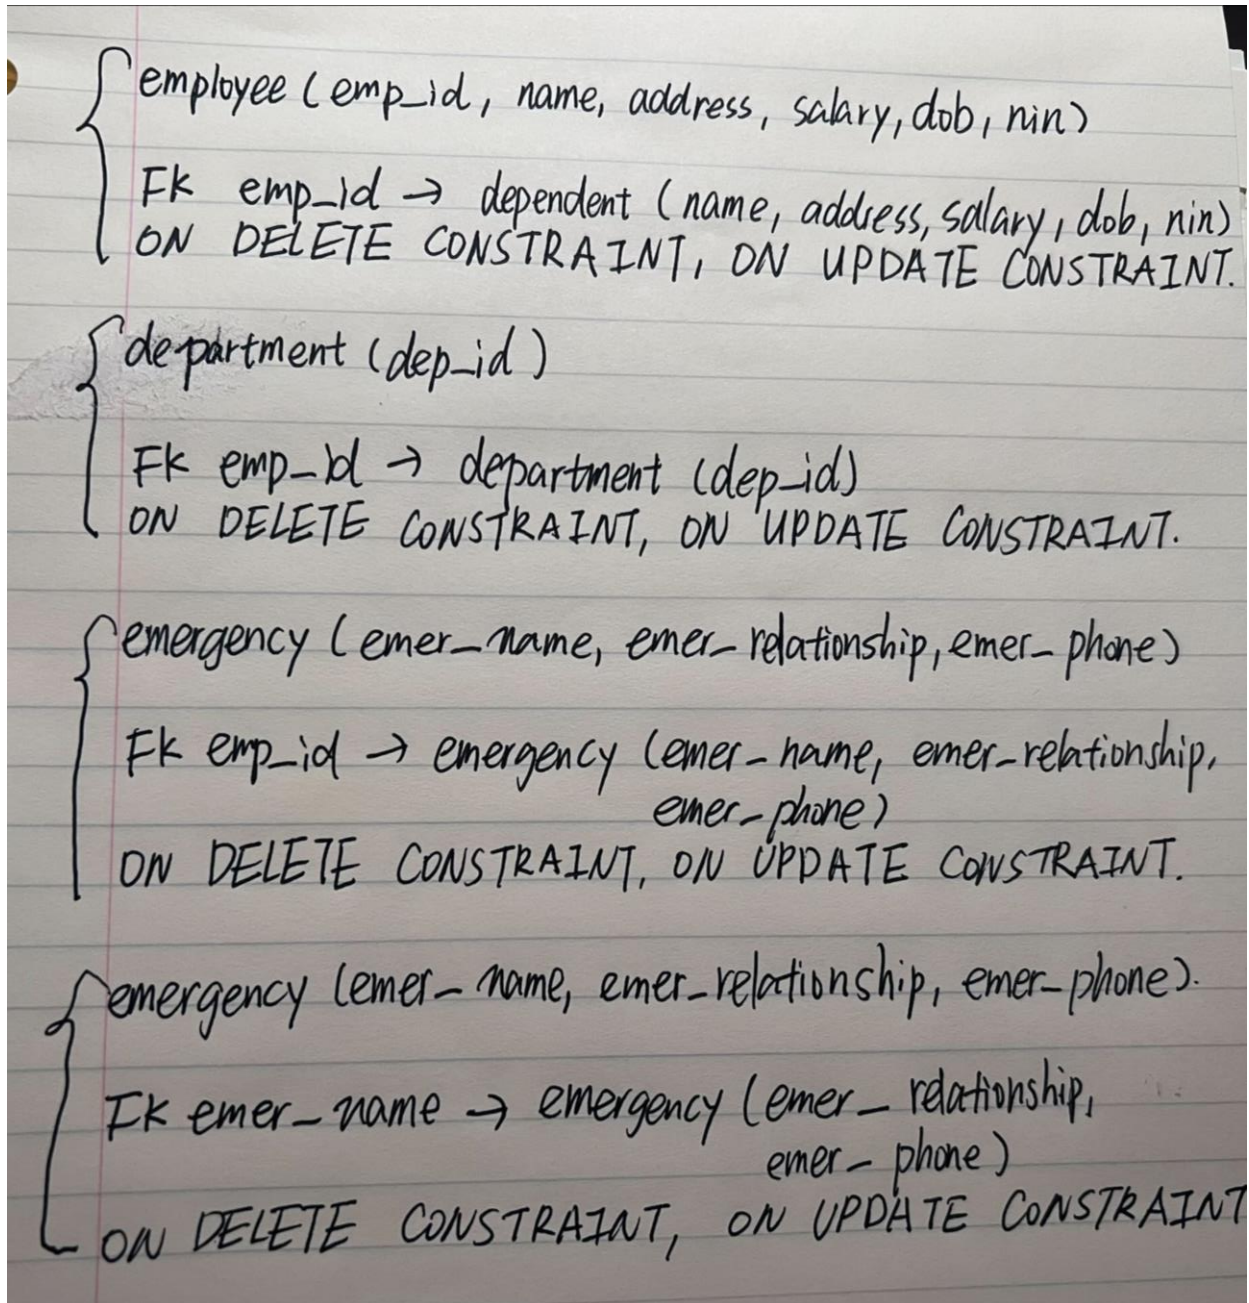 employee (emp_id, name, address, salary, dob, nin)
FK emp_id → dependent (name, address, salary, dob, nin)
ON DELETE CONSTRAINT, ON UPDATE CONSTRAINT.
department (dep_id)
FK emp_id → department (dep_id)
ON DELETE CONSTRAINT, ON UPDATE CONSTRAINT.
emergency (emer_name, emer_relationship, emer_phone)
FK emp_id → emergency (emer_name, emer_relationship,
emer_phone)
ON DELETE CONSTRAINT, ON UPDATE CONSTRAINT.
emergency (emer_name, emer_relationship, emer_phone).
FK emer_name → emergency (emer_relationship,
emer_phone)
ON DELETE CONSTRAINT, ON UPDATE CONSTRAINT